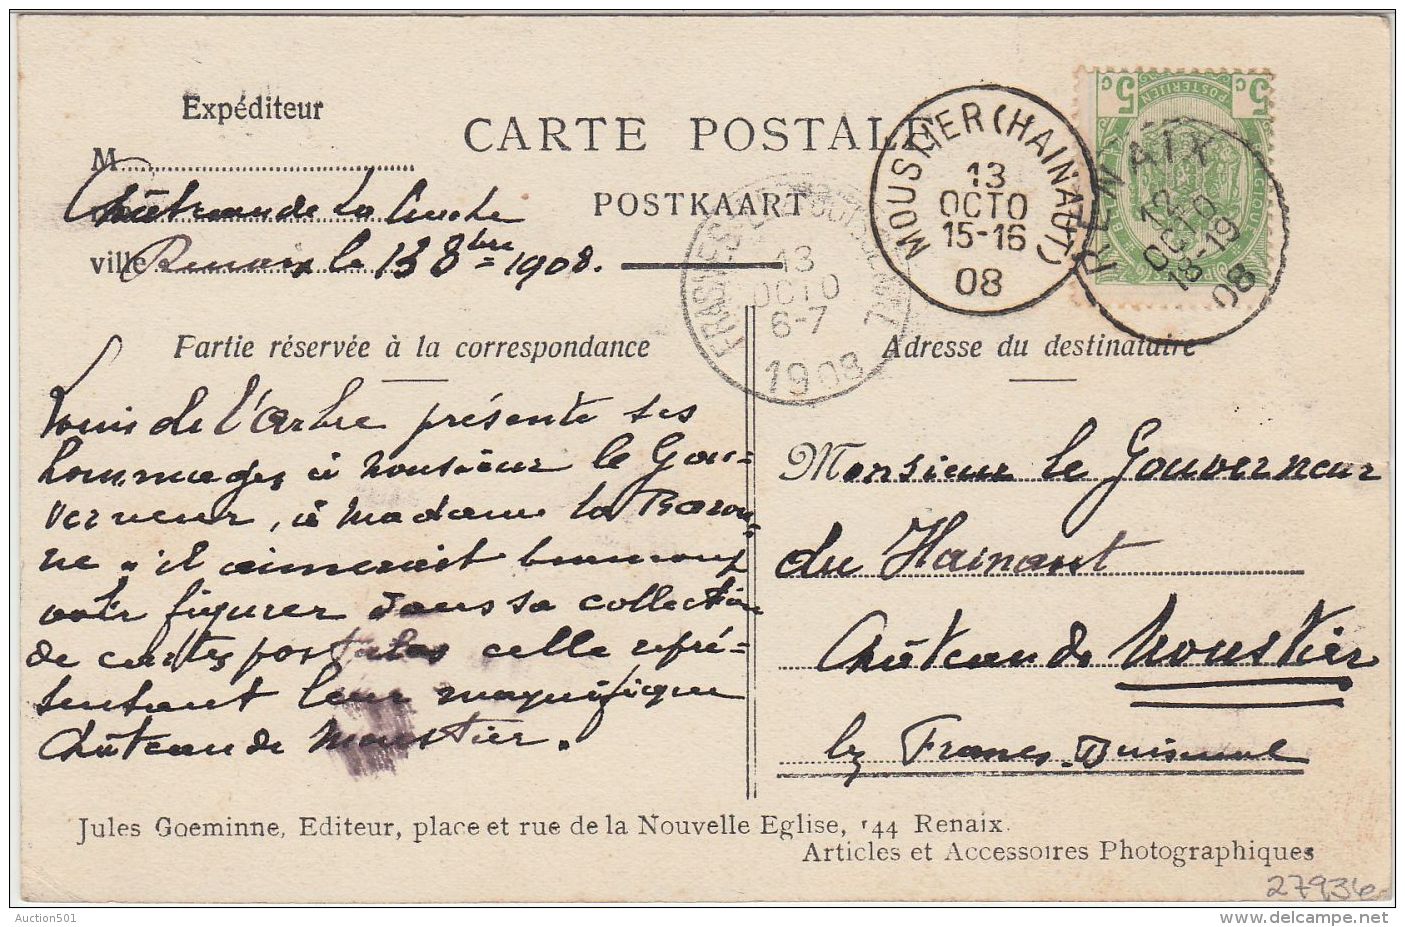 Expéditeur
M
Château de la Cruche
ville Renaix le 13 8bre 1908.
CARTE POSTALE
POSTKAART
MOUSTIER (HAINAUT)
13
OCTO
15-16
08
5 c 5 c
POSTERIJEN
12
OCTO
18-19
08
FRASNES-
13
OCTO
6-7
1908
Partie réservée à la correspondance
Adresse du destinataire
Louis de l'Arbre présente ses
hommages à Monsieur le Gou-
verneur, à Madame la Baron-
ne, il aimerait beaucoup
voir figurer dans sa collection
de cartes postales celle repré-
sentant leur magnifique
Château de Moustier.
Monsieur le Gouverneur
du Hainaut
Château de Moustier
by Frasnes-Buissenal
Jules Goeminne, Editeur, place et rue de la Nouvelle Eglise, 144 Renaix.
Articles et Accessoires Photographiques
27936
Auction501
www.delcampe.net